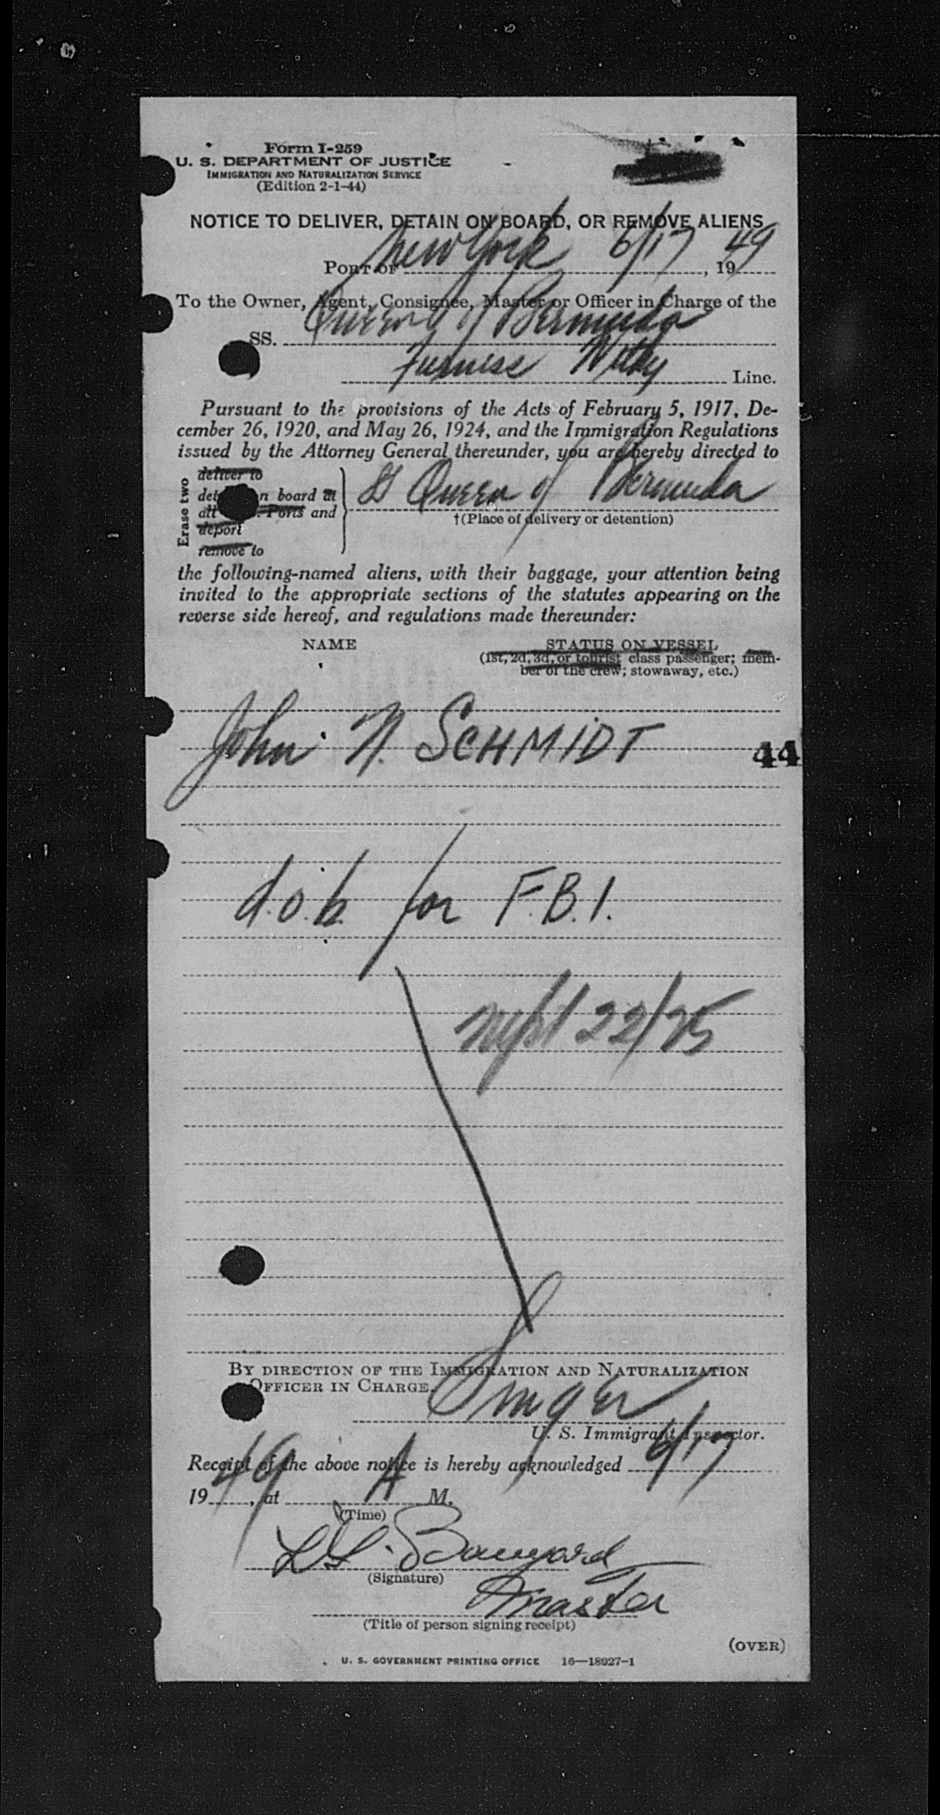 Form I-259
U. S. DEPARTMENT OF JUSTICE
IMMIGRATION AND NATURALIZATION SERVICE
(Edition 2-1-44)
NOTICE TO DELIVER, DETAIN ON BOARD, OR REMOVE ALIENS
PORT OF New York 6/17, 1949
To the Owner, Agent, Consignee, Master or Officer in Charge of the
SS. Queen of Bermuda
Furness Withy Line.
Pursuant to the provisions of the Acts of February 5, 1917, De-
cember 26, 1920, and May 26, 1924, and the Immigration Regulations
issued by the Attorney General thereunder, you are hereby directed to
Erase two
deliver to
on board at
all Ports and
deport
remove to
Queen of Bermuda
†(Place of delivery or detention)
the following-named aliens, with their baggage, your attention being
invited to the appropriate sections of the statutes appearing on the
reverse side hereof, and regulations made thereunder:
NAME STATUS ON VESSEL
(1st, 2d, 3d, or tourist class passenger; mem-
ber of the crew; stowaway, etc.)
John N. SCHMIDT 44
d.o.b. for F.B.I.
22/25
BY DIRECTION OF THE IMMIGRATION AND NATURALIZATION
OFFICER IN CHARGE.
Singer
U. S. Immigrant Inspector.
Receipt of the above notice is hereby acknowledged 6/17
1949, at A M.
(Time)
(Signature)
Master
(Title of person signing receipt)
(OVER)
U. S. GOVERNMENT PRINTING OFFICE 16—18927-1